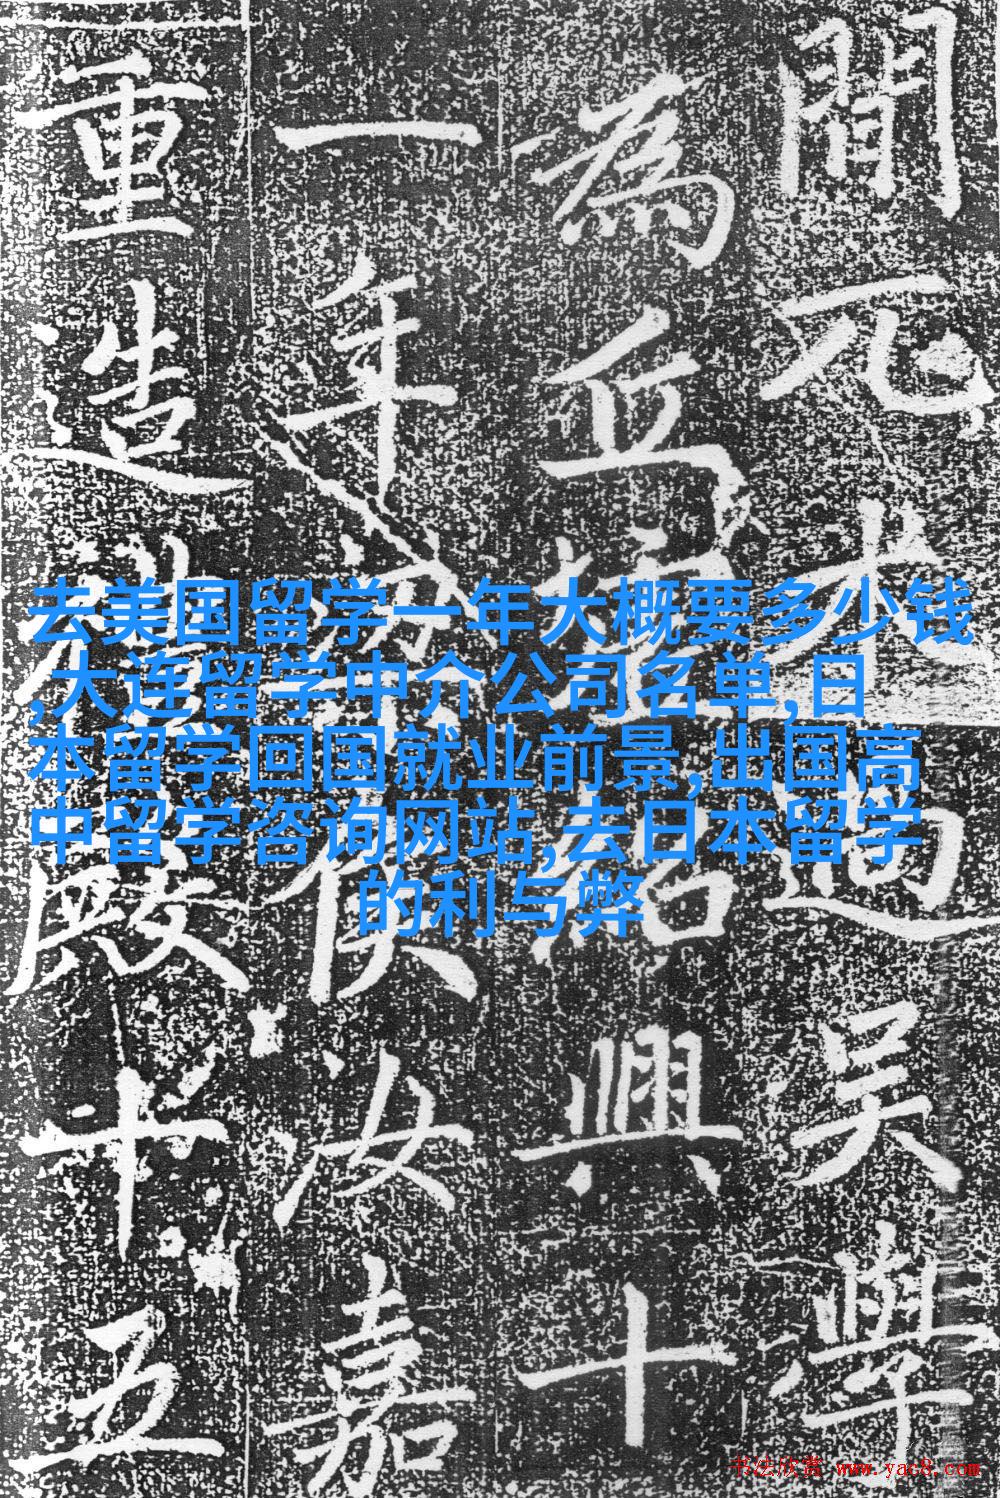 間元過吳學
為丘墟紹興十
一年侯汝嘉
重造殿十五
去美国留学一年大概要多少钱
,大连留学中介公司名单,日
本留学回国就业前景,出国高
中留学咨询网站,去日本留学
的利与弊
书法欣赏 www.yac8.com